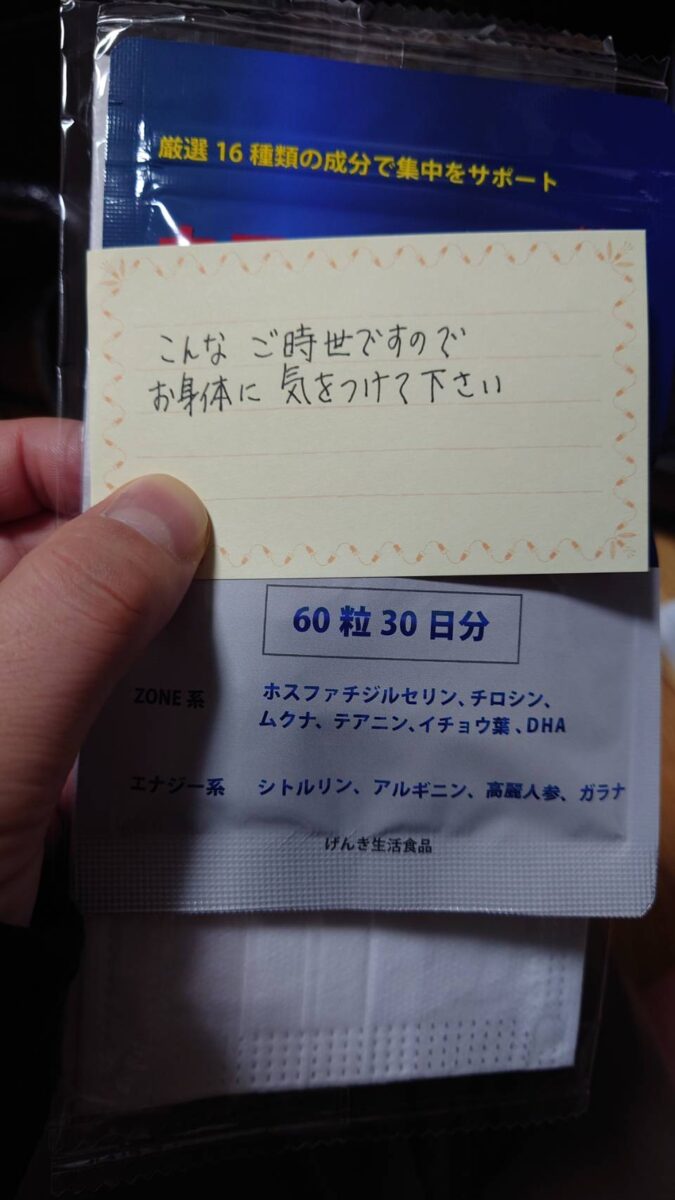 厳選16種類の成分で集中をサポート
こんな ご時世ですので
お身体に 気をつけて下さい
60粒30日分
ZONE系 ホスファチジルセリン、チロシン、
ムクナ、テアニン、イチョウ葉、DHA
エナジー系 シトルリン、アルギニン、高麗人参、ガラナ
げんき生活食品